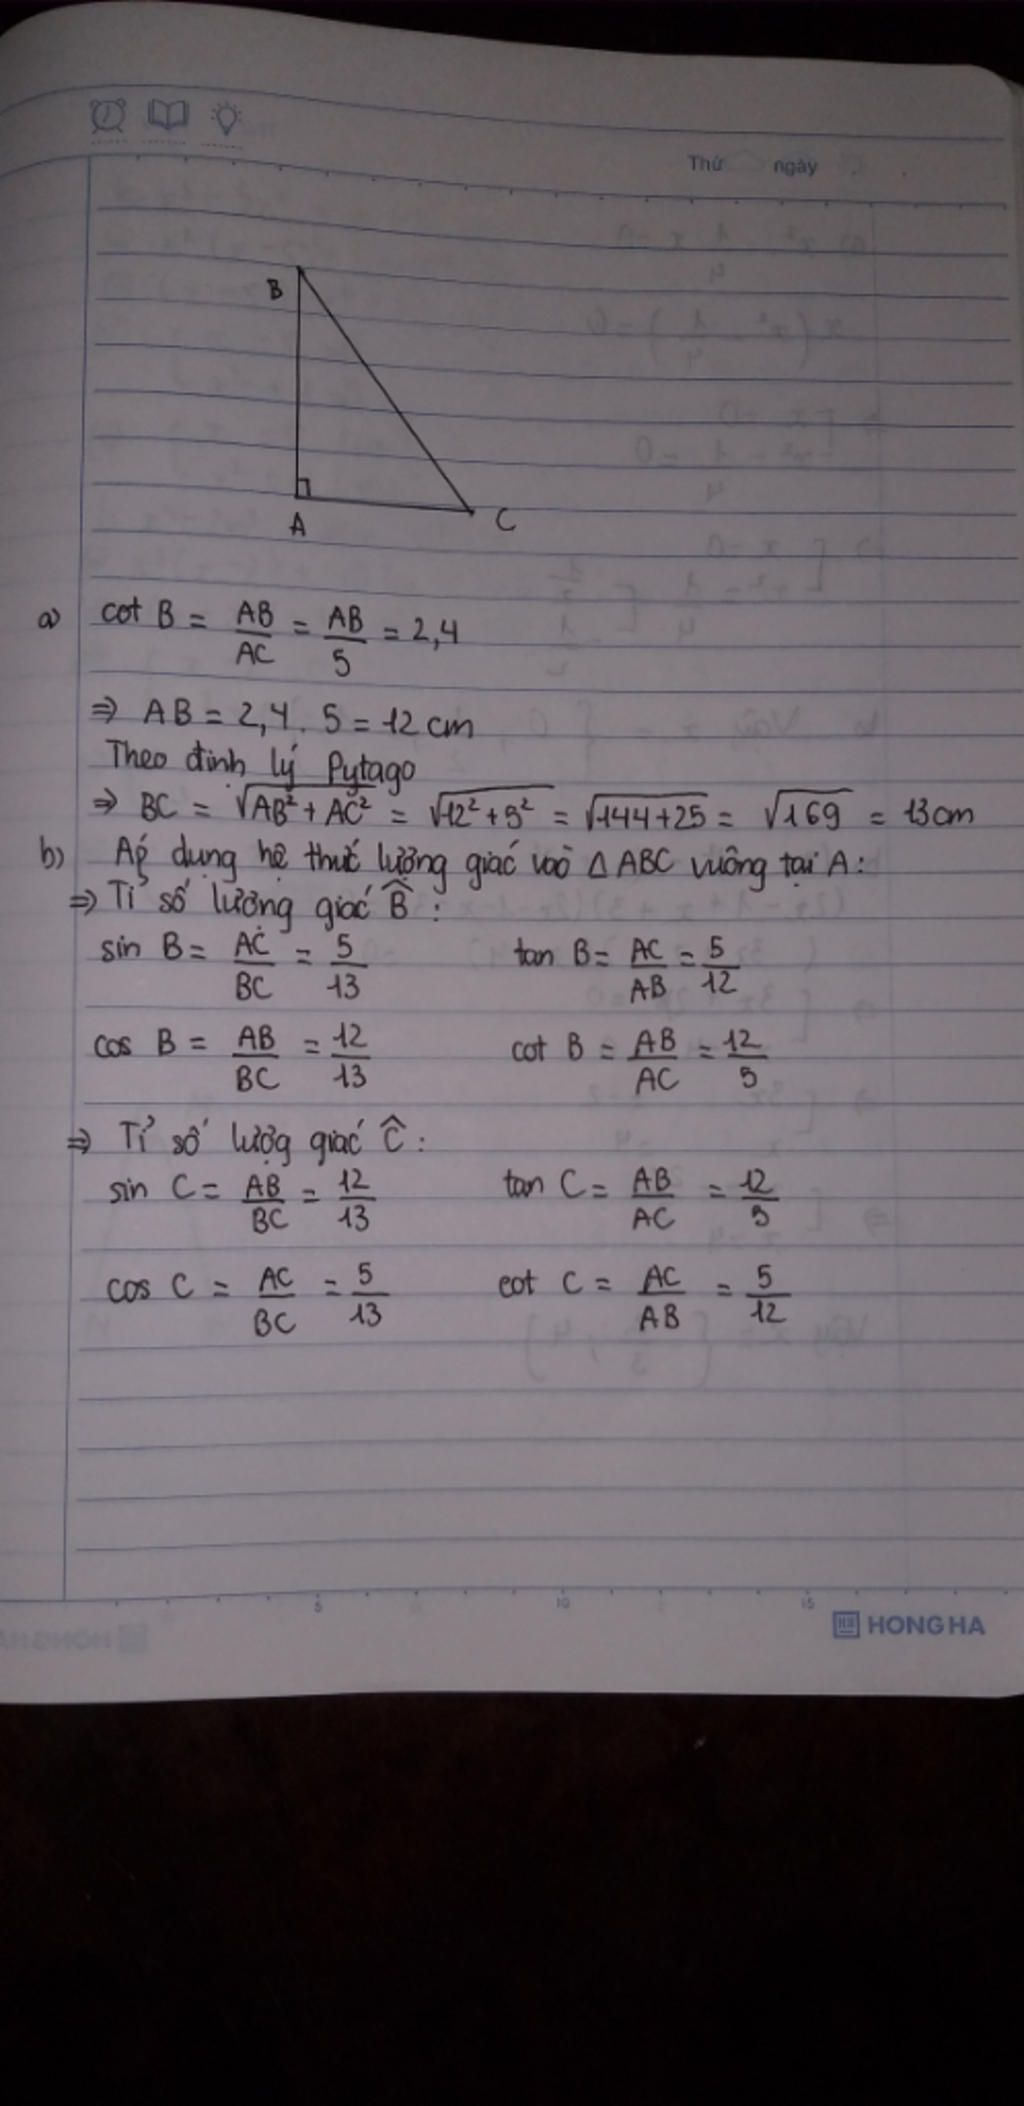 Thứ ngày
B
A
C
a) cot B = AB/AC = AB/5 = 2,4
⇒ AB = 2,4 . 5 = 12 cm
Theo định lý Pytago
⇒ BC = √(AB² + AC²) = √(12² + 5²) = √(144+25) = √169 = 13cm
b) Áp dụng hệ thức lượng giác vào △ABC vuông tại A:
⇒ Tỉ số lượng giác B̂ :
sin B = AC/BC = 5/13 tan B = AC/AB = 5/12
cos B = AB/BC = 12/13 cot B = AB/AC = 12/5
⇒ Tỉ số lượg giác Ĉ :
sin C = AB/BC = 12/13 tan C = AB/AC = 12/5
cos C = AC/BC = 5/13 cot C = AC/AB = 5/12
5 10 15
HONG HA